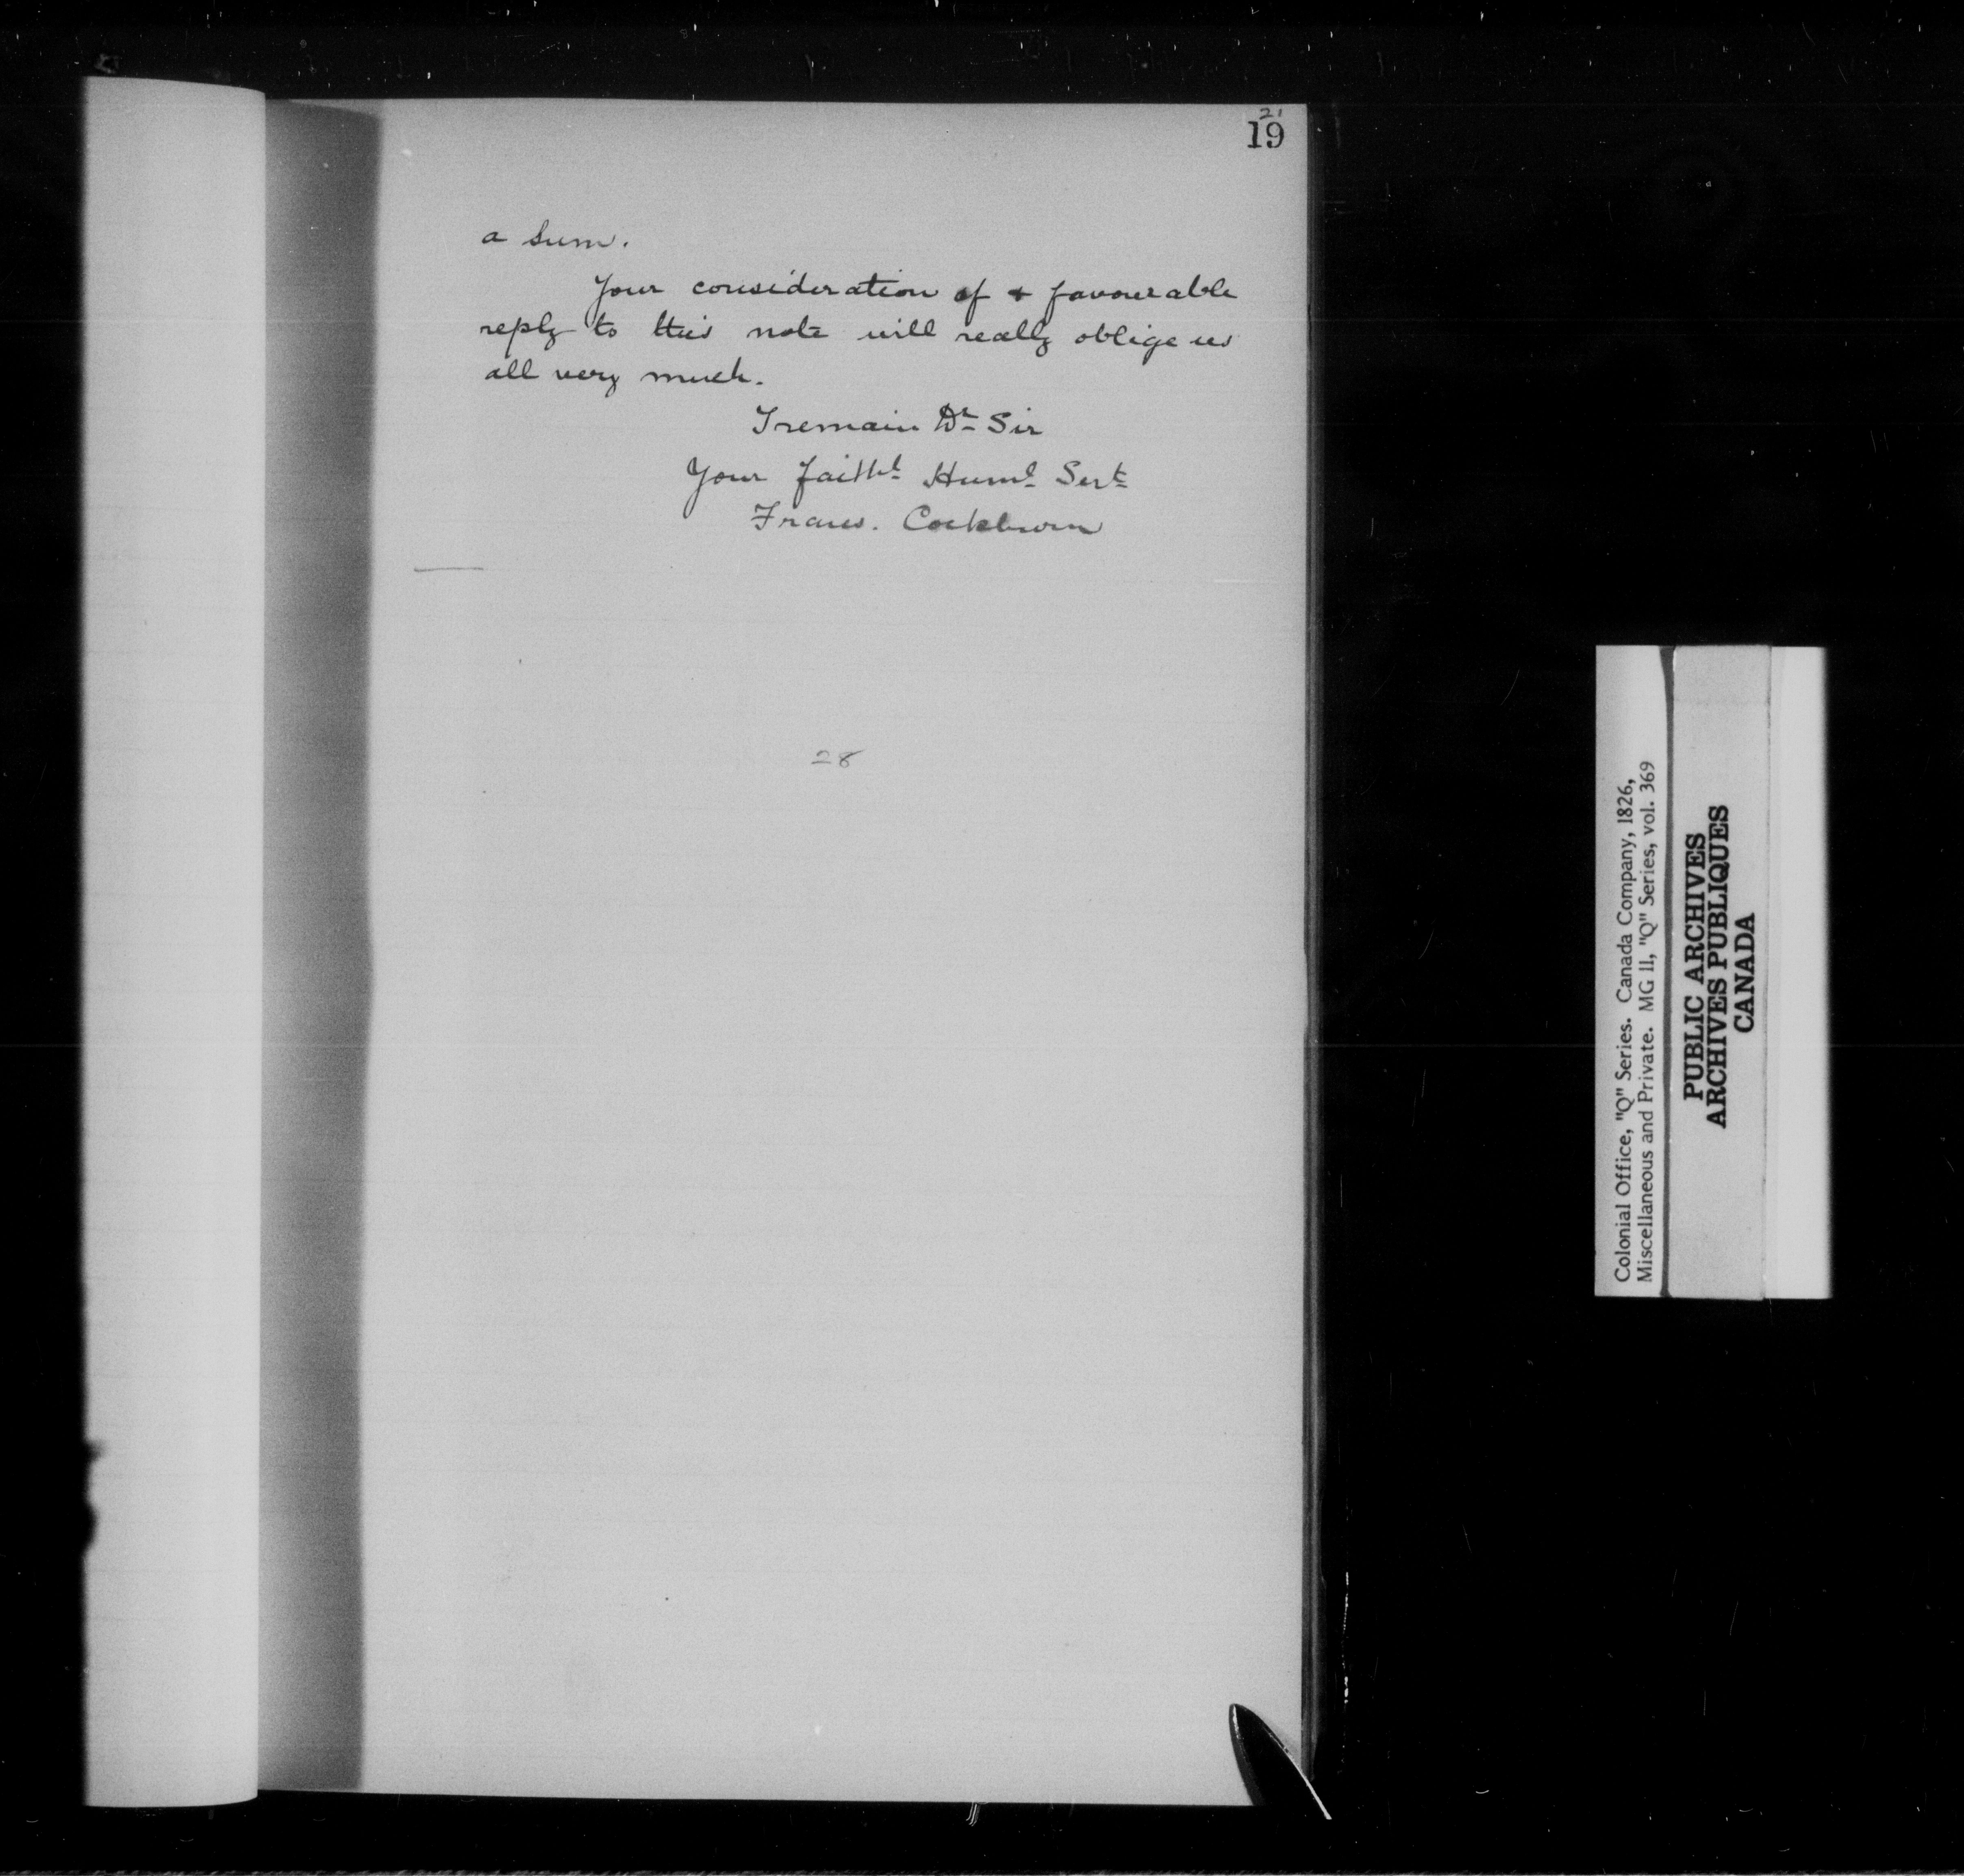 21
19
a sum.
Your consideration of & favourable
reply to this note will really oblige us
all very much.
Iremain Dr Sir
Your faithl Huml Sert
Frans. Cockburn
28
Colonial Office, "Q" Series. Canada Company, 1826,
Miscellaneous and Private. MG 11, "Q" Series, vol. 369
PUBLIC ARCHIVES
ARCHIVES PUBLIQUES
CANADA